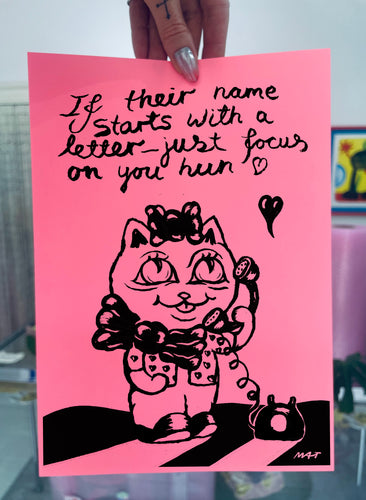 If their name
starts with a
letter - just focus
on you hun ♡
MAT